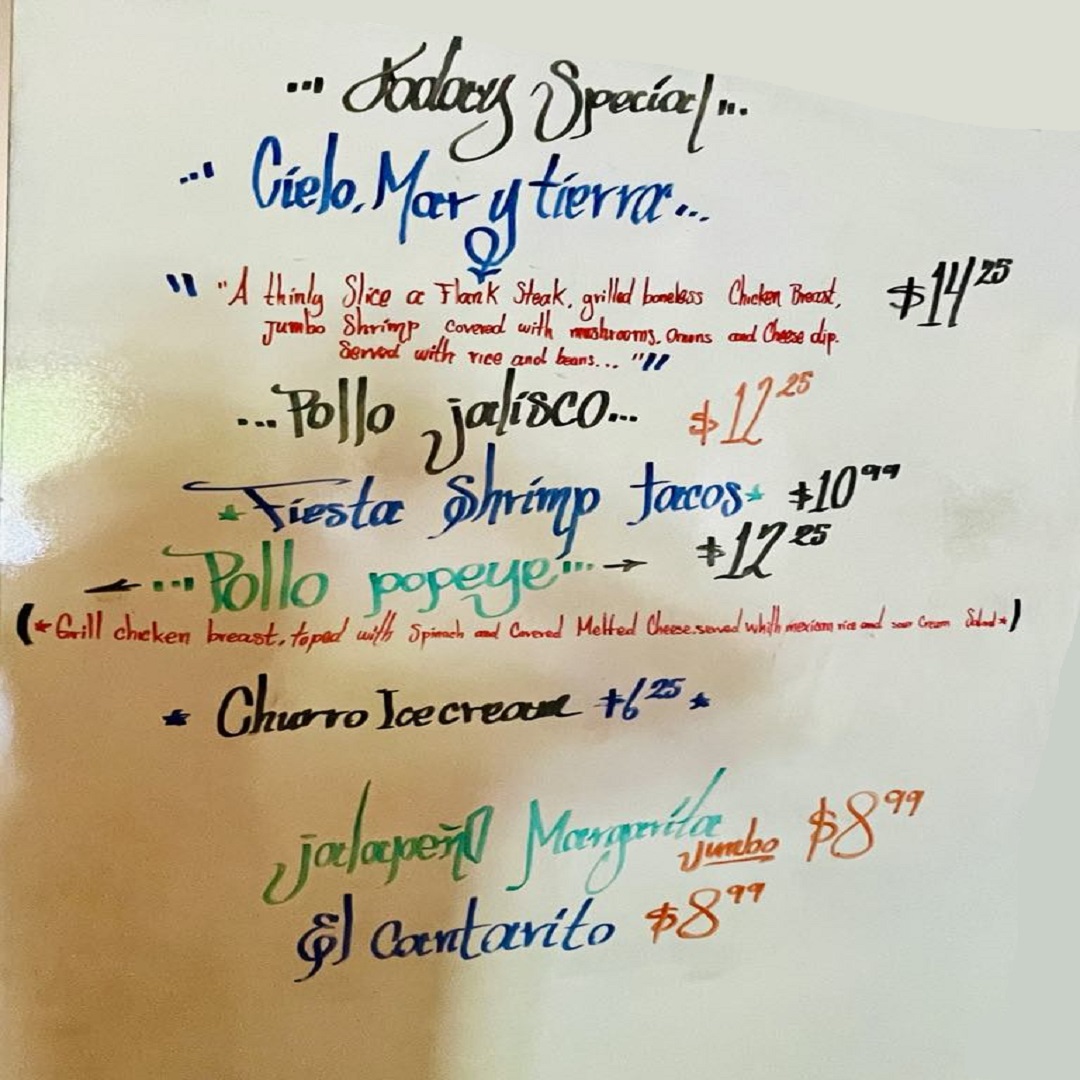 ... Today Special...
... Cielo, Mar y tierra...
" "A thinly Slice a Flank Steak, grilled boneless Chicken Breast, $14 25
jumbo Shrimp covered with mushrooms, onions and Cheese dip.
Served with rice and beans... " "
...Pollo jalisco... $12 25
* Fiesta Shrimp tacos * $10 99
...Pollo popeye... $12 25
(*Grill chicken breast, toped with Spinach and Covered Melted Cheese.served whith mexican rice and sour Cream Salad*)
* Churro Icecream $6 25 *
jalapeño Margarita Jumbo $8 99
El Cantarito $8 99